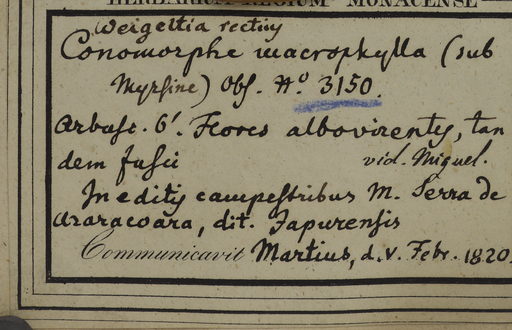 HERBARIUM REGIUM MONACENSE
Weigeltia rectius
Conomorphe macrophylla (sub
Myrsine) Obs. No 3150.
Arbusc. 6'. Flores albovirentes, tan
dem fusci vid. Miquel.
In editis campestribus M. Serra de
Araracoara, dit. Japurensis
Communicavit Martius, d. v. Febr. 1820.